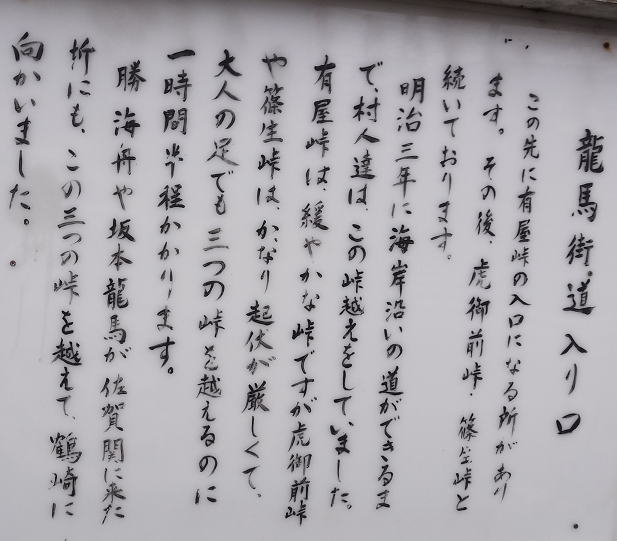 龍馬街道入り口
この先に有屋峠の入口になる所があり
ます。その後、虎御前峠・篠生峠と
続いております。
明治三年に海岸沿いの道ができるま
で、村人達は、この峠越えをしていました。
有屋峠は、緩やかな峠ですが虎御前峠
や篠生峠は、かなり起伏が厳しくて、
大人の足でも三つの峠を越えるのに
一時間半程かかります。
勝海舟や坂本龍馬が佐賀関に来た
折にも、この三つの峠を越えて、鶴崎に
向かいました。